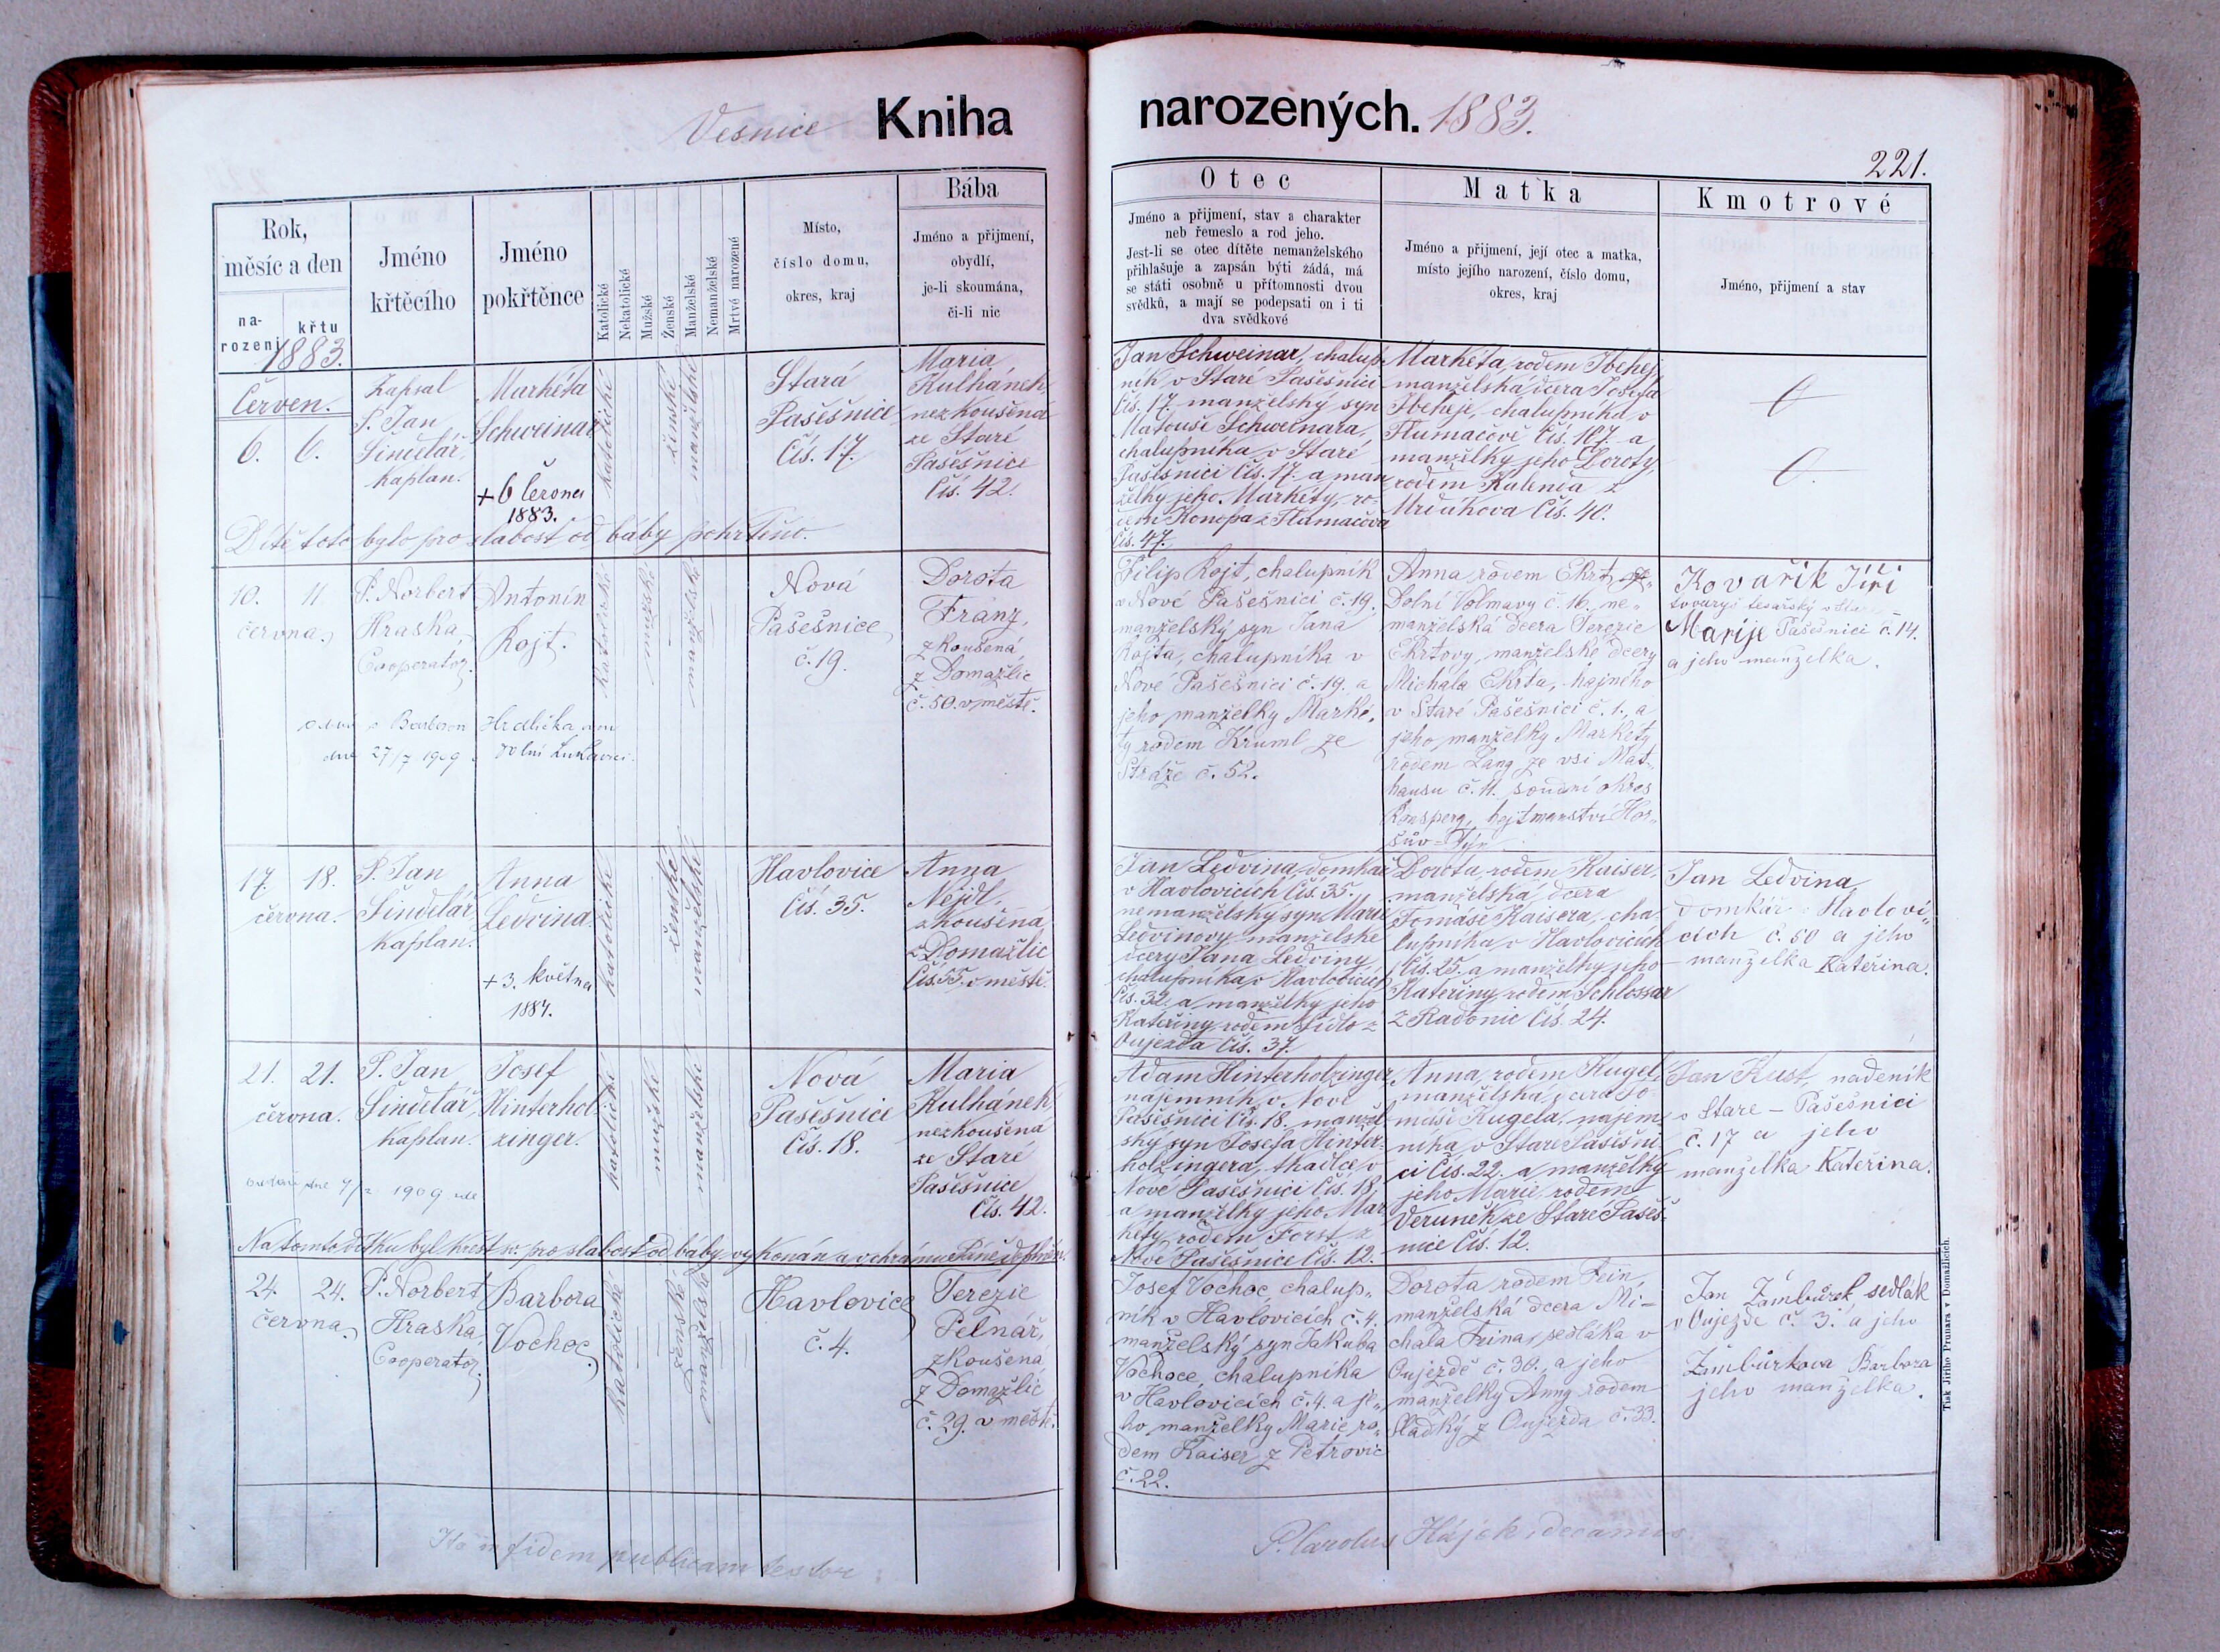 Vesnice Kniha narozených. 1883.
221.
Rok,
měsíc a den
na-
rození
křtu
1883.
Jméno
křtěcího
Jméno
pokřtěnce
Katolické
Nekatolické
Mužské
Ženské
Manželské
Nemanželské
Mrtvě narozené
Místo,
číslo domu,
okres, kraj
Bába
Jméno a přijmení,
obydlí,
je-li skoumána,
či-li nic
Otec
Jméno a přijmení, stav a charakter
neb řemeslo a rod jeho.
Jest-li se otec dítěte nemanželského
přihlašuje a zapsán býti žádá, má
se státi osobně u přítomnosti dvou
svědků, a mají se podepsati on i ti
dva svědkové
Matka
Jméno a přijmení, její otec a matka,
místo jejího narození, číslo domu,
okres, kraj
Kmotrové
Jméno, přijmení a stav
Červen.
6. 6.
Zapsal
P. Jan
Šindelář,
Kaplan.
Markéta
Schweinar
+ 6 června
1883.
katolické
ženské
manželské
Stará
Pašešnice
Čís. 17.
Maria
Kulhánek,
nezkoušená
ze Staré
Pašešnice
Čís. 42.
Dítě toto bylo pro slabost od báby pokřtěno.
Jan Schweinar, chalup-
ník v Staré Pašešnici
Čís. 17. manželský syn
Matouše Schweinara,
chalupníka v Staré
Pašešnici Čís. 17. a man
želky jeho Markéty, ro-
dem Konopa z Tlumačova
Čís. 47.
Markéta, rodem
manželská dcera Josefa
chalupníka v
Tlumačově Čís. 107. a
manželky jeho Doroty,
rodem Kalenda z
Mrďákova Čís. 40.
10. 11.
června
P. Norbert
Hraska,
Cooperator.
Antonín
Rojt.
katolické
mužské
manželské
Nová
Pašešnice
č. 19.
Dorota
Franz,
zkoušená,
z Domažlic
č. 50. v městě.
Hrdlička
dne 27/7 1909 Dolní Lukavici.
Filip Rojt, chalupník
v Nové Pašešnici č. 19.
manželský syn Jana
Rojta, chalupníka v
Nové Pašešnici č. 19. a
jeho manželky Marké-
ty rodem Kruml ze
Stráže č. 52.
Anna rodem Ekrt z
Dolní Volmavy č. 16. ne-
manželská dcera Terezie
Ekrtovy, manželské dcery
Michala Ekrta, hajného
v Staré Pašešnici č. 1., a
jeho manželky Markéty
rodem Lang ze vsi Mat-
hausu č. 11. soudní okres
Ronsperg, hejtmanství Hor-
šův-Týn
Kovařík Jiří
tovaryš tesařský v Staré
Marije Pašešnici č. 14.
a jeho manželka.
17. 18.
června.
P. Jan
Šindelář
Kaplan.
Anna
Ledvina.
+ 3. května
1884.
katolické
ženské
manželské
Havlovice
Čís. 35.
Anna
Nejdl,
zkoušená
z Domažlic
Čís. 55. v městě.
Jan Ledvina, domkář
v Havlovicích Čís. 35.
nemanželský syn Marie
Ledvinovy manželské
dcery Jana Ledviny
chalupníka v Havlovicích
Čís. 32. a manželky jeho
Kateřiny, rodem Sídlo z
Oujezda Čís. 37.
Dorota, rodem Kaiser,
manželská dcera
Tomáše Kaisera, cha-
lupníka v Havlovicích
Čís. 25. a manželky jeho
Kateřiny, rodem Schlosser
z Radonic Čís. 24.
Jan Ledvina,
domkář v Havlovi-
cích č. 50 a jeho
manželka Kateřina.
21. 21.
června.
P. Jan
Šindelář,
Kaplan.
Josef
Hinterhol-
zinger.
katolické
mužské
manželské
Nová
Pašešnice
Čís. 18.
Maria
Kulhánek,
nezkoušená
ze Staré
Pašešnice
Čís. 42.
1909
Na tomto dítku byl křest sv. pro slabost od báby vykonán a v chrámu Páně doplněn.
Adam Hinterholzinger,
nájemník v Nové
Pašešnici Čís. 18. manžel-
ský syn Josefa Hinter-
holzingera, tkadlce v
Nové Pašešnici Čís. 18.
a manželky jeho Mar-
kéty, rodem Forst z
Nové Pašešnice Čís. 12.
Anna, rodem Kugel,
manželská dcera To-
máše Kugela, nájem-
níka v Staré Pašešni-
ci Čís. 22. a manželky
jeho Marie, rodem
Veruněk ze Staré Pašeš-
nice Čís. 12.
Jan Kust, nádeník
v Staré – Pašešnici
č. 17 a jeho
manželka Kateřina.
24. 24.
června
P. Norbert
Hraska,
Cooperator.
Barbora
Vochoc
katolické
ženské
manželské
Havlovice
č. 4.
Terezie
Pelnář,
zkoušená,
z Domažlic
č. 29. v městě.
Josef Vochoc, chalup-
ník v Havlovicích č. 4.
manželský syn Jakuba
Vochoce, chalupníka
v Havlovicích č. 4. a je-
ho manželky Marie, ro-
dem Kaiser z Petrovic
č. 22.
Dorota rodem Fein,
manželská dcera Mi-
chala Feina, sedláka v
Oujezdě č. 30., a jeho
manželky Anny rodem
Sladký z Oujezda č. 33.
Jan Žámbůrek, sedlák
v Oujezdě č. 3. a jeho
Žámbůrkova Barbora
jeho manželka.
Ita in fidem publicam testor:
P. Carolus Hájek, decanus.
Tisk Jiřího Prunara v Domažlicích.